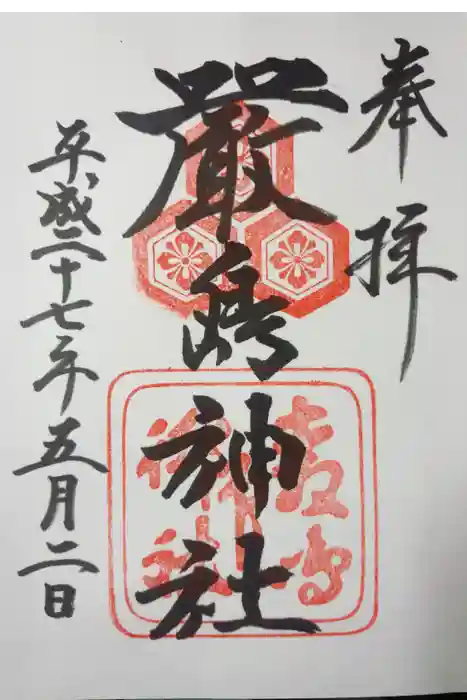 奉拝
厳嶋神社
平成二十七年五月二日
厳嶋
神社